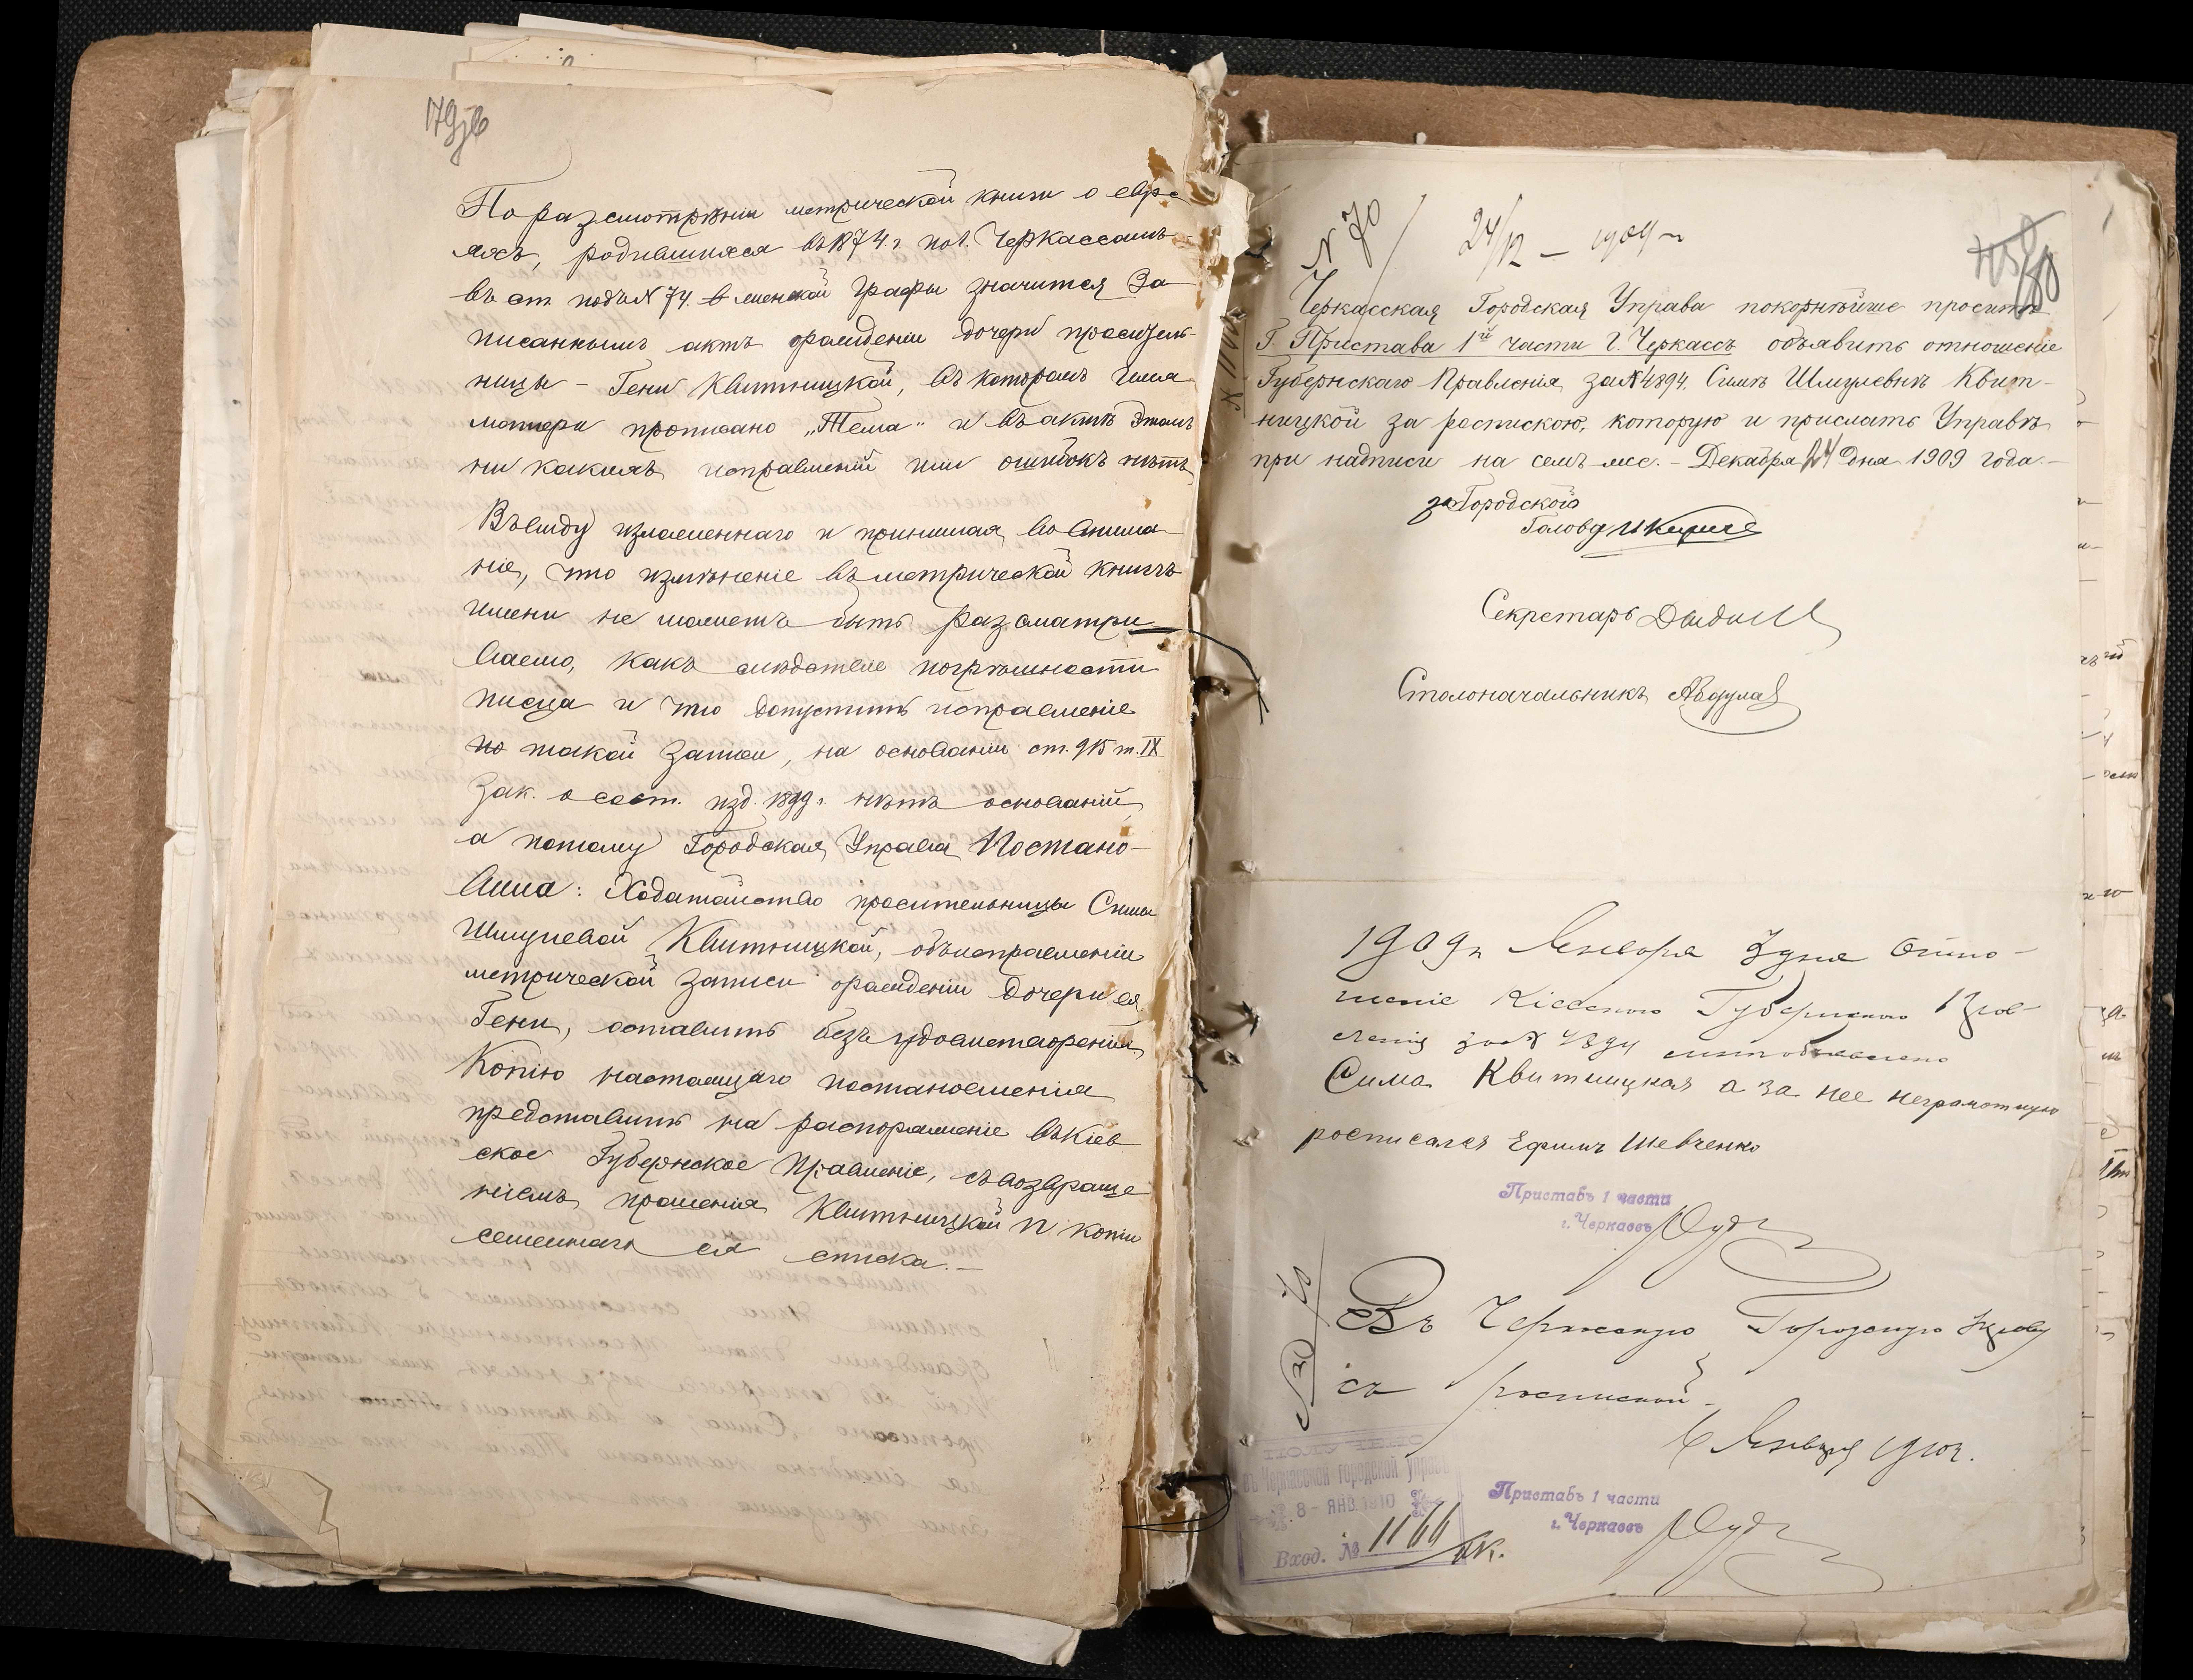 179/об
По разсмотрѣнии метрической книги о евре
яхъ, родившихся въ 1874 г. по г. Черкассамъ
въ ст. подъ N 74. в женской графы значится за
писаннымъ актъ о рожденіи дочери проситель-
ницы – Гени Квитницкой, въ которомъ имя
матери прописано „Тема" и въ актѣ этомъ
ни какихъ исправленій или ошибокъ нѣтъ
Въ виду изложеннаго и принимая во внима
ніе, что измѣненіе въ метрической книгѣ
имени не можетъ быть разсматри
ваемо, какъ слѣдствіе погрѣшности
писца и что допустить исправленіе
по такой записи, на основании ст. 915 т. IX
Зак. о сост. изд. 1899 г. нѣтъ основаній,
а потому Городская Управа Постано-
вила: Ходатайство просительницы Симы
Шмулевой Квитницкой, объ исправленіи
метрической записи о рожденіи дочери ея
Гени, оставить безъ удовлетворенія,
Копію настоящаго постановленія
представить на распоряженіе въ Кіев
ское Губернское Правленіе, съ возвраще
ніемъ прошенія Квитницкой и копіи
семейнаго ея списка.–
N 70 / 24/12 – 1909 г
80
Черкасская Городская Управа покорнѣйше проситъ
Г. Пристава 1й части г. Черкассъ объявить отношеніе
Губернскаго Правленія за N 4894. Симѣ Шмулевнѣ Квит-
ницкой за роспискою, которую и прислать Управѣ
при надписи на семъ-же. – Декабря 24 дня 1909 года.–
за Городского
Голову
Секретарь
Столоначальникъ
1909 г Января 3 дня Отно-
шеніе Кіевского Губернского Прав-
ленія за N 4894 мнѣ объявлено
Сима Квитницкая а за нее неграмотную
росписался Ефимъ Шевченко
Приставъ 1 части
г. Черкассъ
N 30
Въ Черкасскую Городскую Управу
съ роспиской.
6 Января 1910 г.
ПОЛУЧЕНО
въ Черкасской городской управѣ
8 – ЯНВ. 1910
Вход. № 1166
Приставъ 1 части
г. Черкассъ